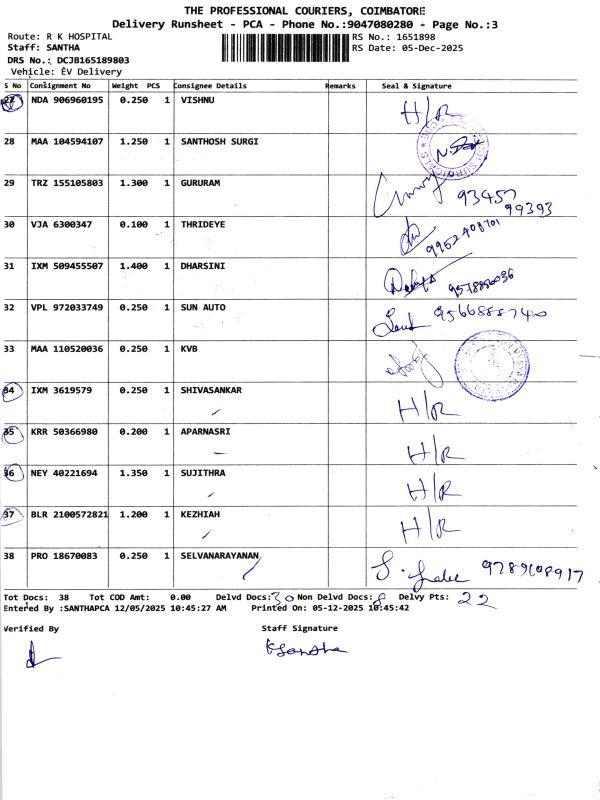 THE PROFESSIONAL COURIERS, COIMBATORE
Delivery Runsheet - PCA - Phone No.:9047080280 - Page No.:3
Route: R K HOSPITAL RS No.: 1651898
Staff: SANTHA RS Date: 05-Dec-2025
DRS No.: DCJB165189803
Vehicle: EV Delivery
S No Consignment No Weight PCS Consignee Details Remarks Seal & Signature
27 NDA 906960195 0.250 1 VISHNU H/R
28 MAA 104594107 1.250 1 SANTHOSH SURGI
29 TRZ 155105803 1.300 1 GURURAM 93457
99393
30 VJA 6300347 0.100 1 THRIDEYE 9952408701
31 IXM 509455507 1.400 1 DHARSINI
32 VPL 972033749 0.250 1 SUN AUTO 9566888740
33 MAA 110520036 0.250 1 KVB
34 IXM 3619579 0.250 1 SHIVASANKAR H/R
35 KRR 50366980 0.200 1 APARNASRI H/R
36 NEY 40221694 1.350 1 SUJITHRA H/R
37 BLR 2100572821 1.200 1 KEZHIAH H/R
38 PRO 18670083 0.250 1 SELVANARAYANAN 9789608917
Tot Docs: 38 Tot COD Amt: 0.00 Delvd Docs: 30 Non Delvd Docs: 8 Delvy Pts: 22
Entered By :SANTHAPCA 12/05/2025 10:45:27 AM Printed On: 05-12-2025 10:45:42
Verified By Staff Signature